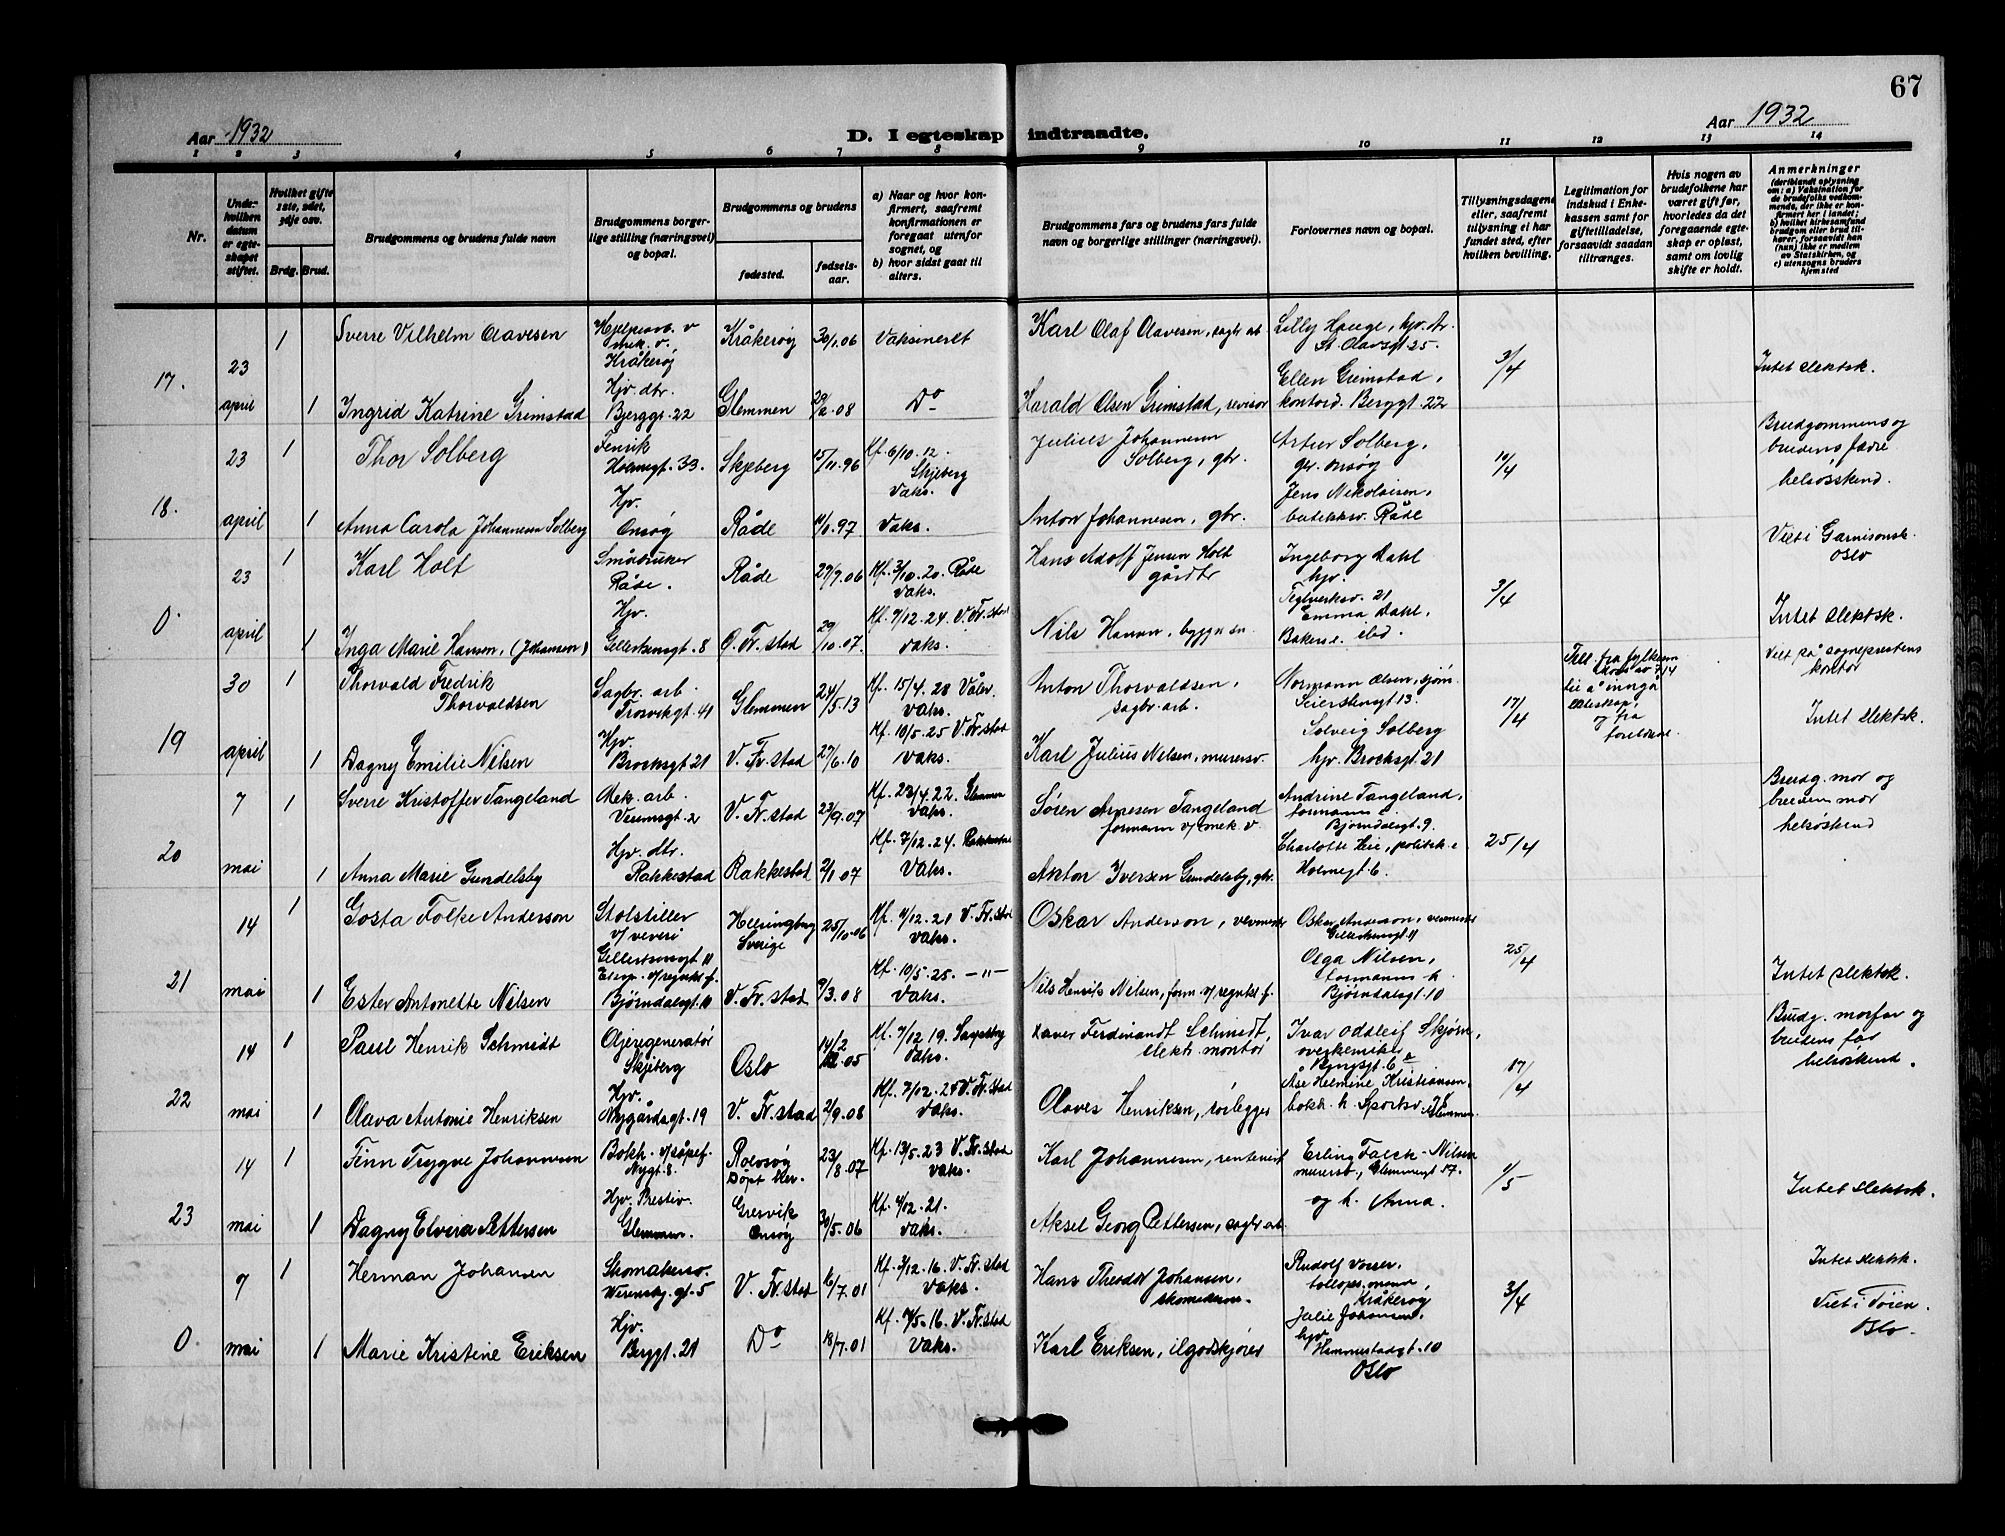 67
Aar 1932
D. I egteskap indtraadte.
Aar 1932
1 2 3 4 5 6 7 8 9 10 11 12 13 14
Nr.
Under hvilken datum er egteskapet stiftet.
Hvilket gifte 1ste, 2det, 3dje osv.
Brdg. Brud.
Brudgommens og brudens fulde navn
Brudgommens borgerlige stilling (næringsvei) og bopæl.
Brudgommens og brudens
fødested.
fødselsaar.
a) Naar og hvor konfirmert, saafremt konfirmationen er foregaat utenfor sognet, og
b) hvor sidst gaat til alters.
Brudgommens fars og brudens fars fulde navn og borgerlige stillinger (næringsvei).
Forlovernes navn og bopæl.
Tillysningsdagene eller, saafremt tillysning ei har fundet sted, efter hvilken bevilling.
Legitimation for indskud i Enkekassen samt for giftetilladelse, forsaavidt saadan tiltrænges.
Hvis nogen av brudefolkene har været gift før, hvorledes da det foregaaende egteskap er opløst, samt om lovlig skifte er holdt.
Anmerkninger
(deriblandt oplysning om: a) Vaksination for de brudefolks vedkommende, der ikke er konfirmert her i landet; b) hvilket kirkesamfund brudgom eller brud tilhører, forsaavidt han (hun) ikke er medlem av Statskirken, og c) utensogns bruders hjemsted
17. 23 april
1 Sverre Vilhelm Olavesen
Hjelpearb. v mek. v. Kråkerøy
Kråkerøy 30/1.06 Vaksinert
Karl Olaf Olavesen, sagbr. arb
Lilly Hauge, hjv. dr.
St. Olavsgt 25.
3/4
Intet slektsk.
1 Ingrid Katrine Grimstad
Hjv. dtr.
Bjerggt. 22
Glemmen 08 Do
Harald Olsen Grimstad, revisor
Ellen Grimstad,
kontord. Berggt. 22
18. 23 april
1 Thor Solberg
Fenrik
Holmegt. 33.
Skjeberg 15/11.96
Kf. 6/10.12. Skjeberg
Vaks.
Julius Johannesen
Solberg, gbr.
Artur Solberg,
gbr. Onsøy
10/4
Brudgommens og
brudens fædre
helsøskend.
1 Anna Carola Johannesen Solberg
Hjv.
Onsøy
Råde 97 Vaks.
Anton Johannesen, gbr.
Jens Nikolaisen,
butikksv. Råde
0. 23 april
1 Karl Holt
Småbruker
Råde.
Råde 29/7.06
Kf. 3/10.20. Råde
Vaks.
Hans Adolf Jensen Holt
gårdbr
Ingeborg Dahl
hjv.
Teglverksv. 21
3/4
Viet i Garnisonsk.
Oslo
1 Inga Marie Hansen, (Johansen)
Hjv.
Gellertsensgt. 8
Ø. Fr.stad 29/10.07.
Kf. 7/12.24. V. Fr.stad
Vaks.
Nils Hansen, byggn.sn.
Emma Dahl,
Bakeri e. sted.
Intet slektsk.
19 30 april
1 Thorvald Fredrik
Thorvaldsen
Sagbr. arb.
Trosvikgt. 41
Glemmen 24/5.13
Kf. 15/4.28 Våler
Vaks.
Anton Thorvaldsen,
sagbr. arb.
Normann Olsen, sjøm.
Seierstensgt 13.
17/4
Till. fra fylkesm
til å inngå
ekteskap,
og fra
foreldrene.
Viet på sogneprestens
kontor
1 Dagny Emilie Nilsen
Hjv.
Brochsgt 21
V. Fr.stad 27/6.10
Kf. 10/5.25 V. Fr.stad
Vaks.
Karl Julius Nilsen, murersv.
Solveig Solberg
hjv. Brochsgt 21
Intet slektsk.
20 7 mai
1 Sverre Kristoffer Tangeland
Mek. arb.
Veumsgt. 2
V. Fr.stad 23/9.07
Kf. 23/4.22. Glemmen
Vaks.
Søren Arnesen Tangeland
formann v/ mek. v.
Andrine Tangeland,
formanns e
Bjørndalsgt. 9.
25/4
Brudg. mor og
brudens mor
helsøskend
1 Anna Marie Gundelsby
Hjv. dtr.
Rakkestad
Rakkestad 2/1 07
Kf. 7/12.24. Rakkestad
Vaks.
Anton Iversen Gundelsby, gbr.
Charlotte Lie, politik. e
Holmegt 6.
21 14 mai
1 Gosta Folke Anderson
Stolstiller
v/ veveri
Gellertsensgt 11
Helsingborg
Sverige 25/10.06
Kf. 4/12.21 V. Fr.stad
Vaks.
Oskar Anderson, vevmester
Oskar Anderson, vevmester
Gellertsensgt 11
25/4
1 Ester Antonette Nilsen
Bjørndalsgt. 10
V. Fr.stad 9/3.08
Kf. 10/5.25. -"-
Vaks.
Nils Henrik Nilsen, form v/
Olga Nilsen,
formanns h.
Bjørndalsgt. 10
Intet slektsk.
22 14 mai
1 Paul Henrik Schmidt
Oljeregeneratør
Skjeberg
Oslo 14/2 05
Kf. 7/12 19. Sarpsborg
Vaks.
Xaver Ferdinandt Schmidt,
elektr. montør
Ivar Oddleif Skjørn,
overkemiker
Bjergsgt. 6
17/4
Brudg. morfar og
brudens far
helsøskend.
1 Olava Antonie Henriksen
Hjv.
Nygårdsgt. 19
V. Fr.stad 2/9.08
Kf. 7/12.25 V. Fr.stad
Vaks.
Olaves Henriksen, rørlegger
Åse Helmine Kristiansen,
bokh. h. Glemmen
23 14 mai
1 Finn Trygve Johannesen
Bokh. v/såpef.
Nygt. 8.
Rolvsøy
Døpt her. 23/8.07
Kf. 13/5.23 V. Fr.stad
Vaks.
Karl Johannesen, rentenist
Erling Falch-Nilsen
murersv., Glemmengt 17.
1/5
1 Dagny Elvira Pettersen
Hjv. Bestiv.
Glemmen.
Gresvik
Onsøy 30/5.06
Kf. 4/12.21.
Vaks.
Aksel Georg Pettersen, sagbr. arb.
og h. Anna.
Intet slektsk.
0. 7 mai
1 Herman Johansen
Skomakersv.
Werensk. gt. 5
V. Fr.stad 16/7.01
Kf. 3/12.16. V. Fr.stad
Vaks.
Hans Theodor Johansen,
Rudolf
tolloppsynsmann,
Kråkerøy
3/4
Intet slektsk.
1 Marie Kristine Eriksen
Hjv.
Berggt. 21
Do 18/7.01
Kf. 7/5-16. V. Fr.stad
Vaks.
Karl Eriksen, ilgodskjører
Julie Johansen,
hjv.
Hammerstadgt. 10
Oslo
Viet i Tøien
Oslo.